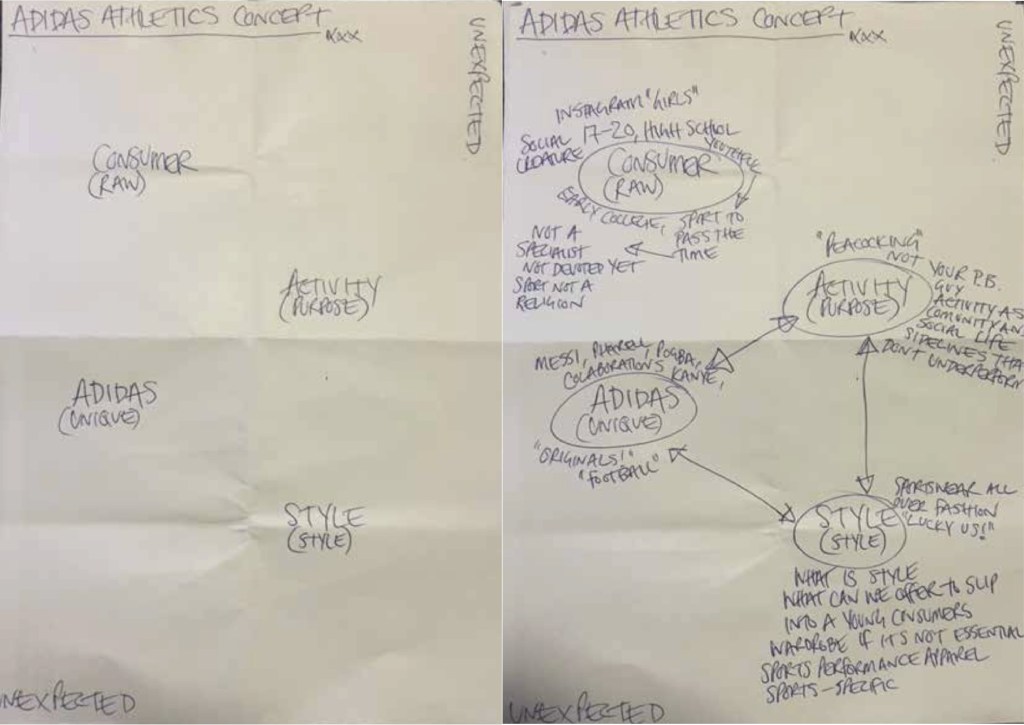 ADIDAS ATHLETICS CONCEPT
XXX
UNEXPECTED
CONSUMER
(RAW)
ACTIVITY
(PURPOSE)
ADIDAS
(UNIQUE)
STYLE
(STYLE)
UNEXPECTED
ADIDAS ATHLETICS CONCEPT
XXX
UNEXPECTED
INSTAGRAM "GIRLS"
17-20, HIGH SCHOOL
SOCIAL
CREATURE
CONSUMER
(RAW)
EARLY COLLEGE,
SPORT TO
PASS THE
TIME
NOT A
SPECIALIST
NOT DEVOTED YET
SPORT NOT A
RELIGION
"PEACOCKING"
NOT YOUR P.B.
GUY
ACTIVITY AS
COMUNITY AN
SOCIAL LIFE
SIDELINES THA
DON'T UNDERPERFORM
ACTIVITY
(PURPOSE)
MESSI, PHARELL, POGBA,
COLABORATIONS KANYE,
ADIDAS
(UNIQUE)
"ORIGINALS!"
"FOOTBALL"
SPORTSWEAR ALL
OVER FASHION
"LUCKY US!"
STYLE
(STYLE)
WHAT IS STYLE
WHAT CAN WE OFFER TO SLIP
INTO A YOUNG CONSUMERS
WARDROBE IF IT'S NOT ESSENTIAL
SPORTS PERFORMANCE APPAREL
SPORTS-SPECIFIC
UNEXPECTED